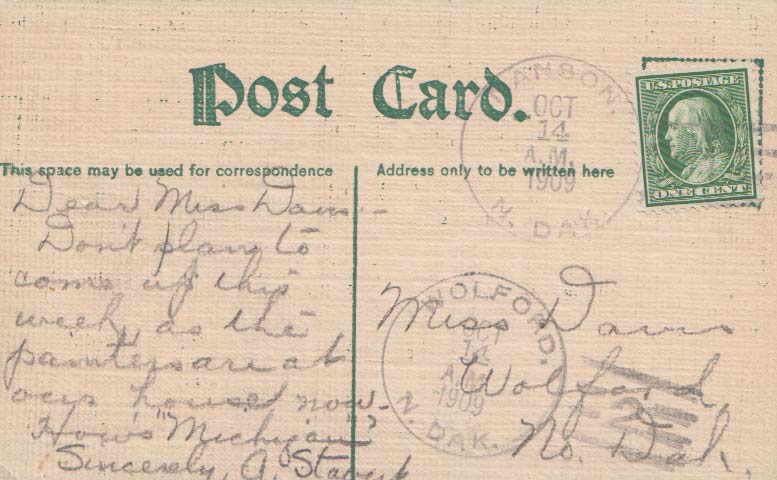 Post Card.
ANSON,
OCT
14
A.M.
1909
N. DAK.
U.S. POSTAGE
ONE CENT
This space may be used for correspondence
Address only to be written here
Dear Miss Davis -
Don't plan to
come up this
week, as the
painters are at
our house now -
How's "Michigan"
Sincerely, A.
WOLFORD,
OCT
14
A.M.
1909
N. DAK.
Miss Davis
Wolford,
No. Dak.
2